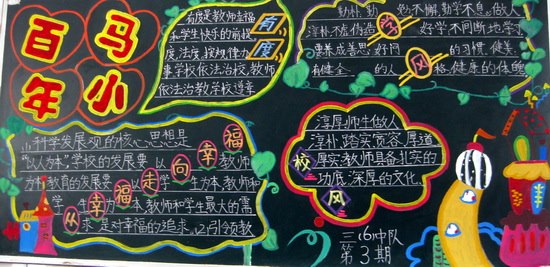 百年马小
有度
有度是教师幸福
和学生快乐的前提
度,法度,按规律办
事学校依法治校,教师
依法治教学校遵章
学风
勤朴,勤 勉不懈,勤学不息。做人
淳朴,不 伪造 好学不间断地学习
康养成善思 好问 的习惯,健美
有健全 的人 格,健康的体魄
小科学发展观的核心思想是
“以人为本”,学校的发展要 以教师
为本教育的发展要 以学
生为本,教师和学生最大的需
求是对幸福的追求。(2)引领教
从幸福走向幸福
校风
淳厚,师生做人
淳朴,踏实宽容,厚道
厚实:教师具备扎实的
功底,深厚的文化
三(6)中队
第3期